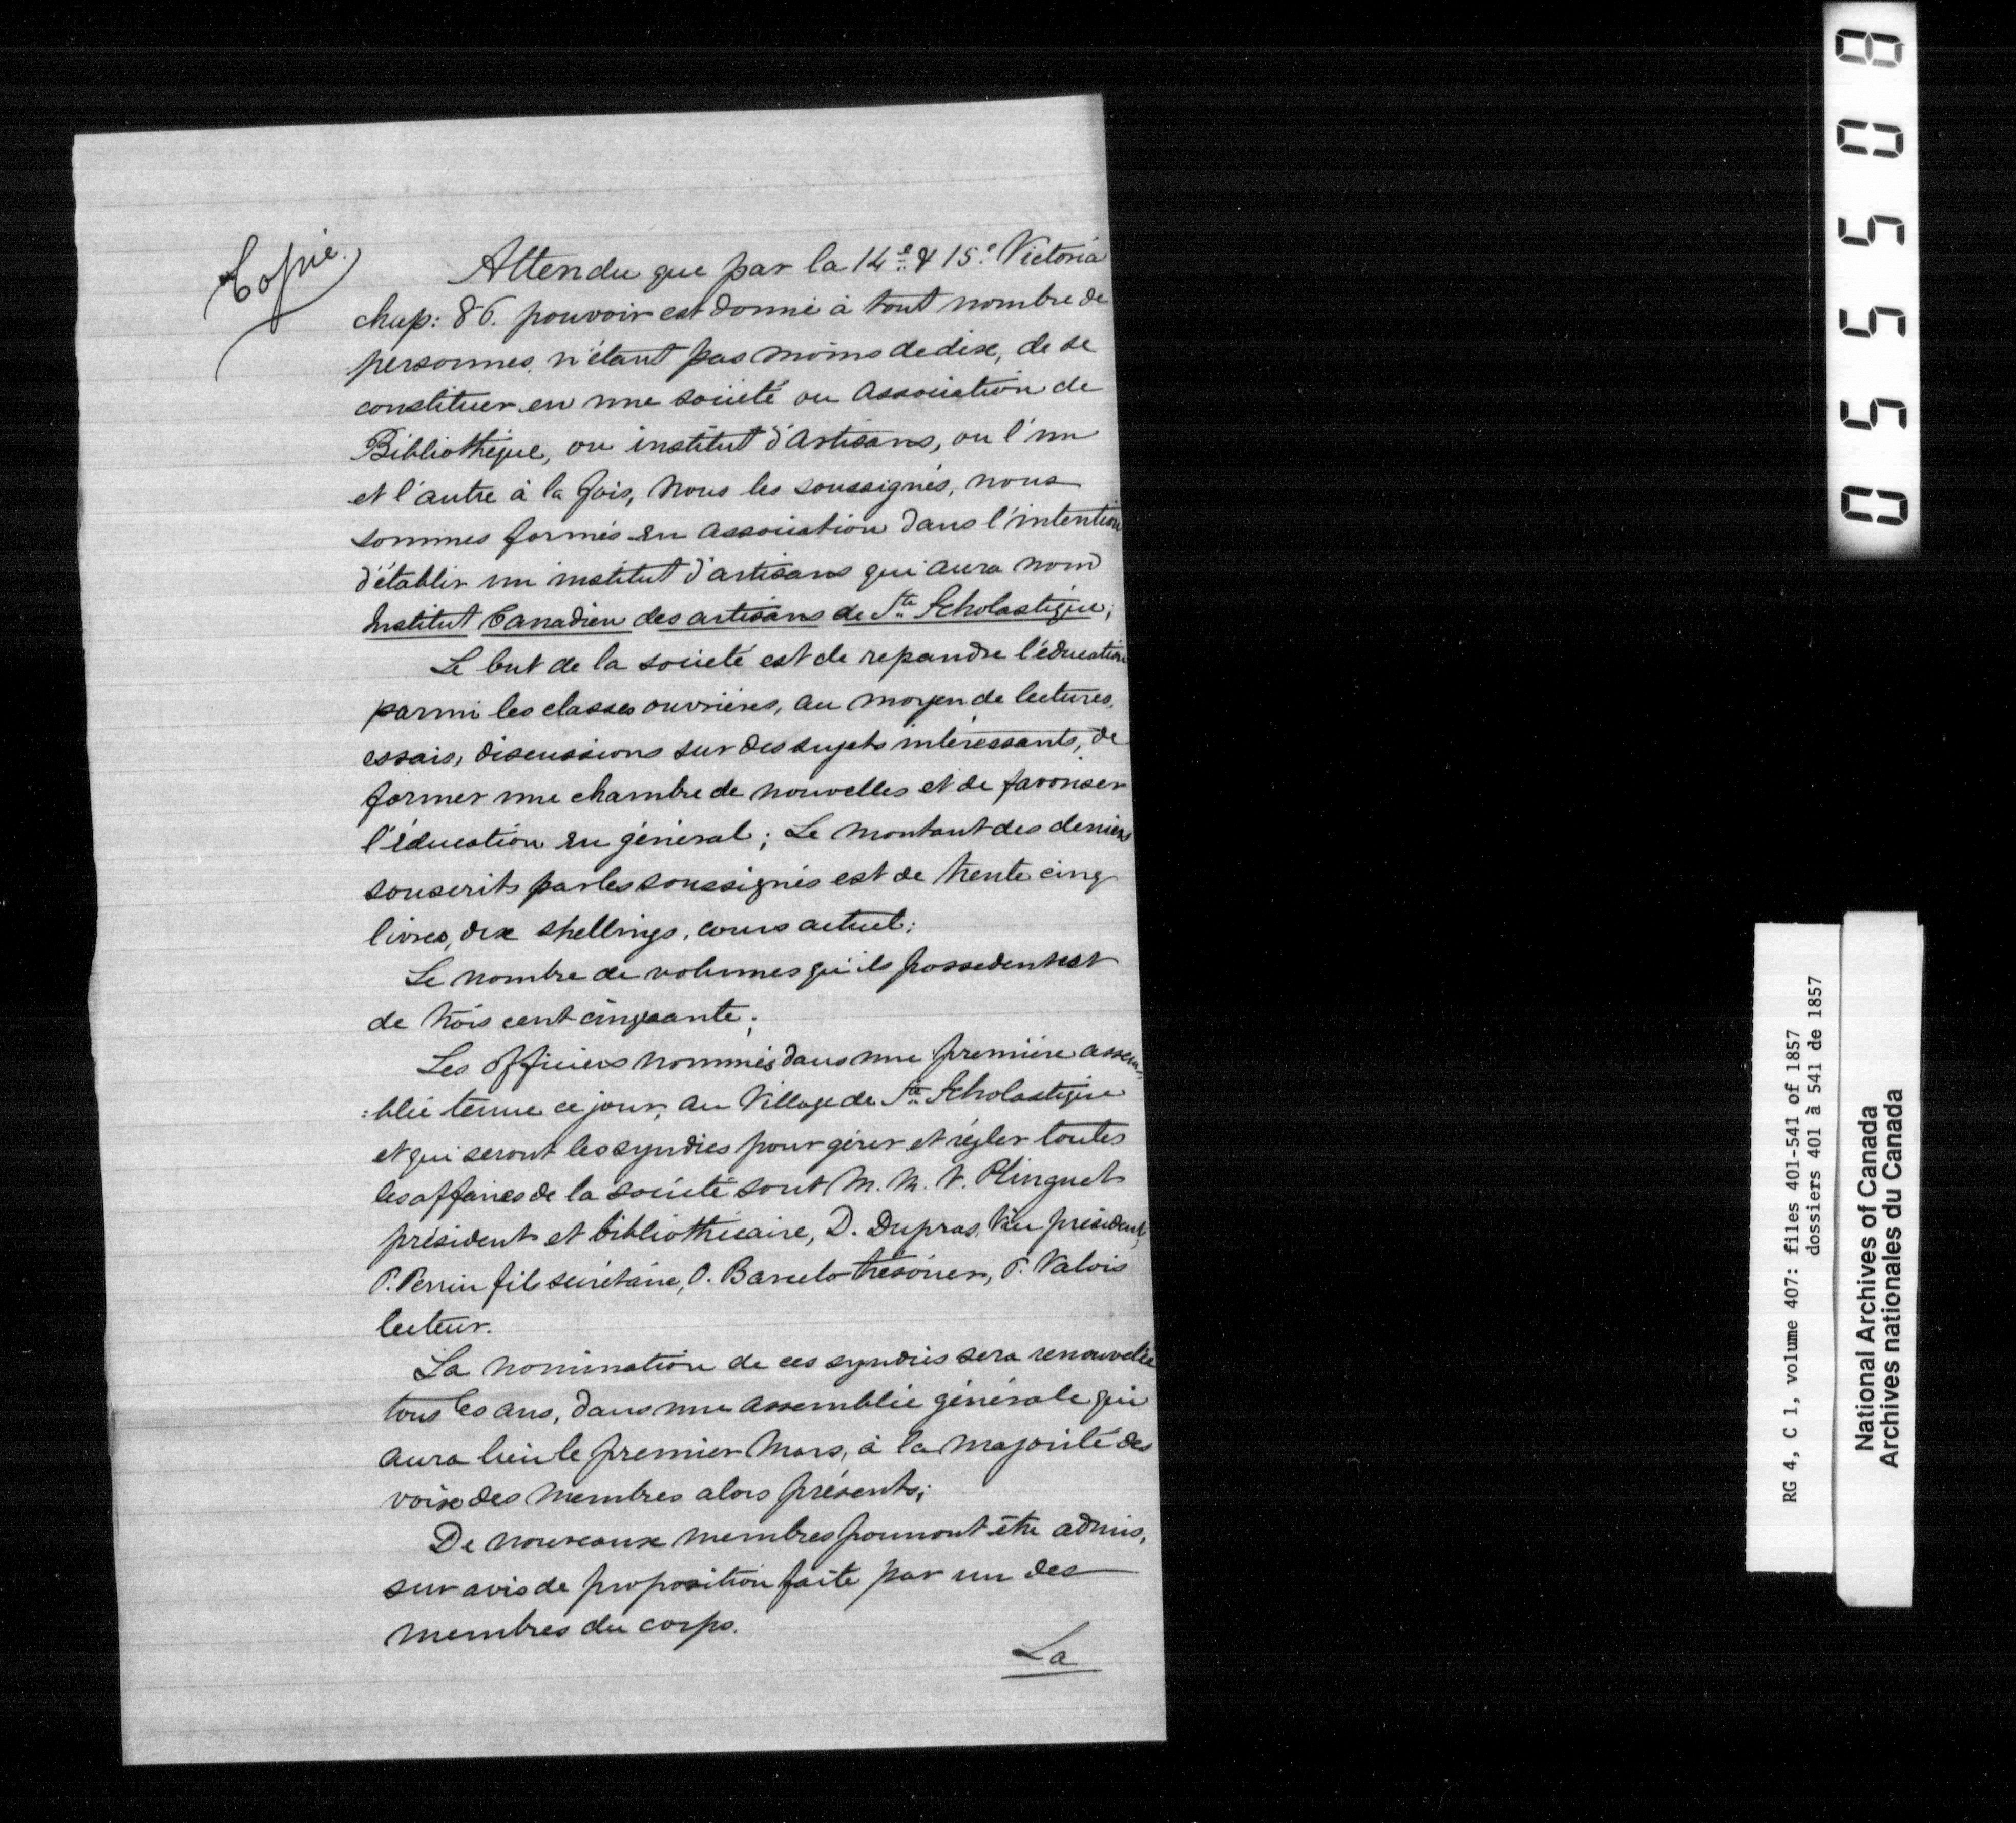 Copie.
Attendu que par la 14e & 15e Victoria
chap: 86. pouvoir est donné à tout nombre de
personnes, n'étant pas moins de dix, de se
constituer en une société ou association de
Bibliothèque, ou institut d'artisans, ou l'un
et l'autre à la fois, Nous les soussignés, nous
sommes formés en association dans l'intention
d'établir un institut d'artisans qui aura nom
Institut Canadien des artisans de Ste Scholastique;
Le but de la société est de repandre l'éducation
parmi les classes ouvrières, au moyen de lectures,
essais, discussions sur des sujets intéressants, de
former une chambre de nouvelles et de favoriser
l'éducation en général; Le montant des deniers
souscrits par les soussignés est de trente cinq
livres, dix shellings, cours actuel;
Le nombre de volumes qu'ils possedent est
de trois cent cinquante;
Les officiers nommés dans une première assem-
:blée tenue ce jour, au Village de Ste Scholastique
et qui seront les syndics pour gérer et régler toutes
les affaires de la société sont M. M. V. Plinguet
président et bibliothécaire, D. Dupras, Vice président,
P. Perrin fils secrétaire, O. Barcelo trésorier, P. Valois
lecteur.
La nomination de ces syndics sera renouvelée
tous les ans, dans une assemblée générale qui
aura lieu le premier Mars, à la majorité des
voix des membres alors présents;
De nouveaux membres pourront être admis,
sur avis de proposition faite par un des
membres du corps.
La
05508
RG 4, C 1, volume 407: files 401-541 of 1857
dossiers 401 à 541 de 1857
National Archives of Canada
Archives nationales du Canada